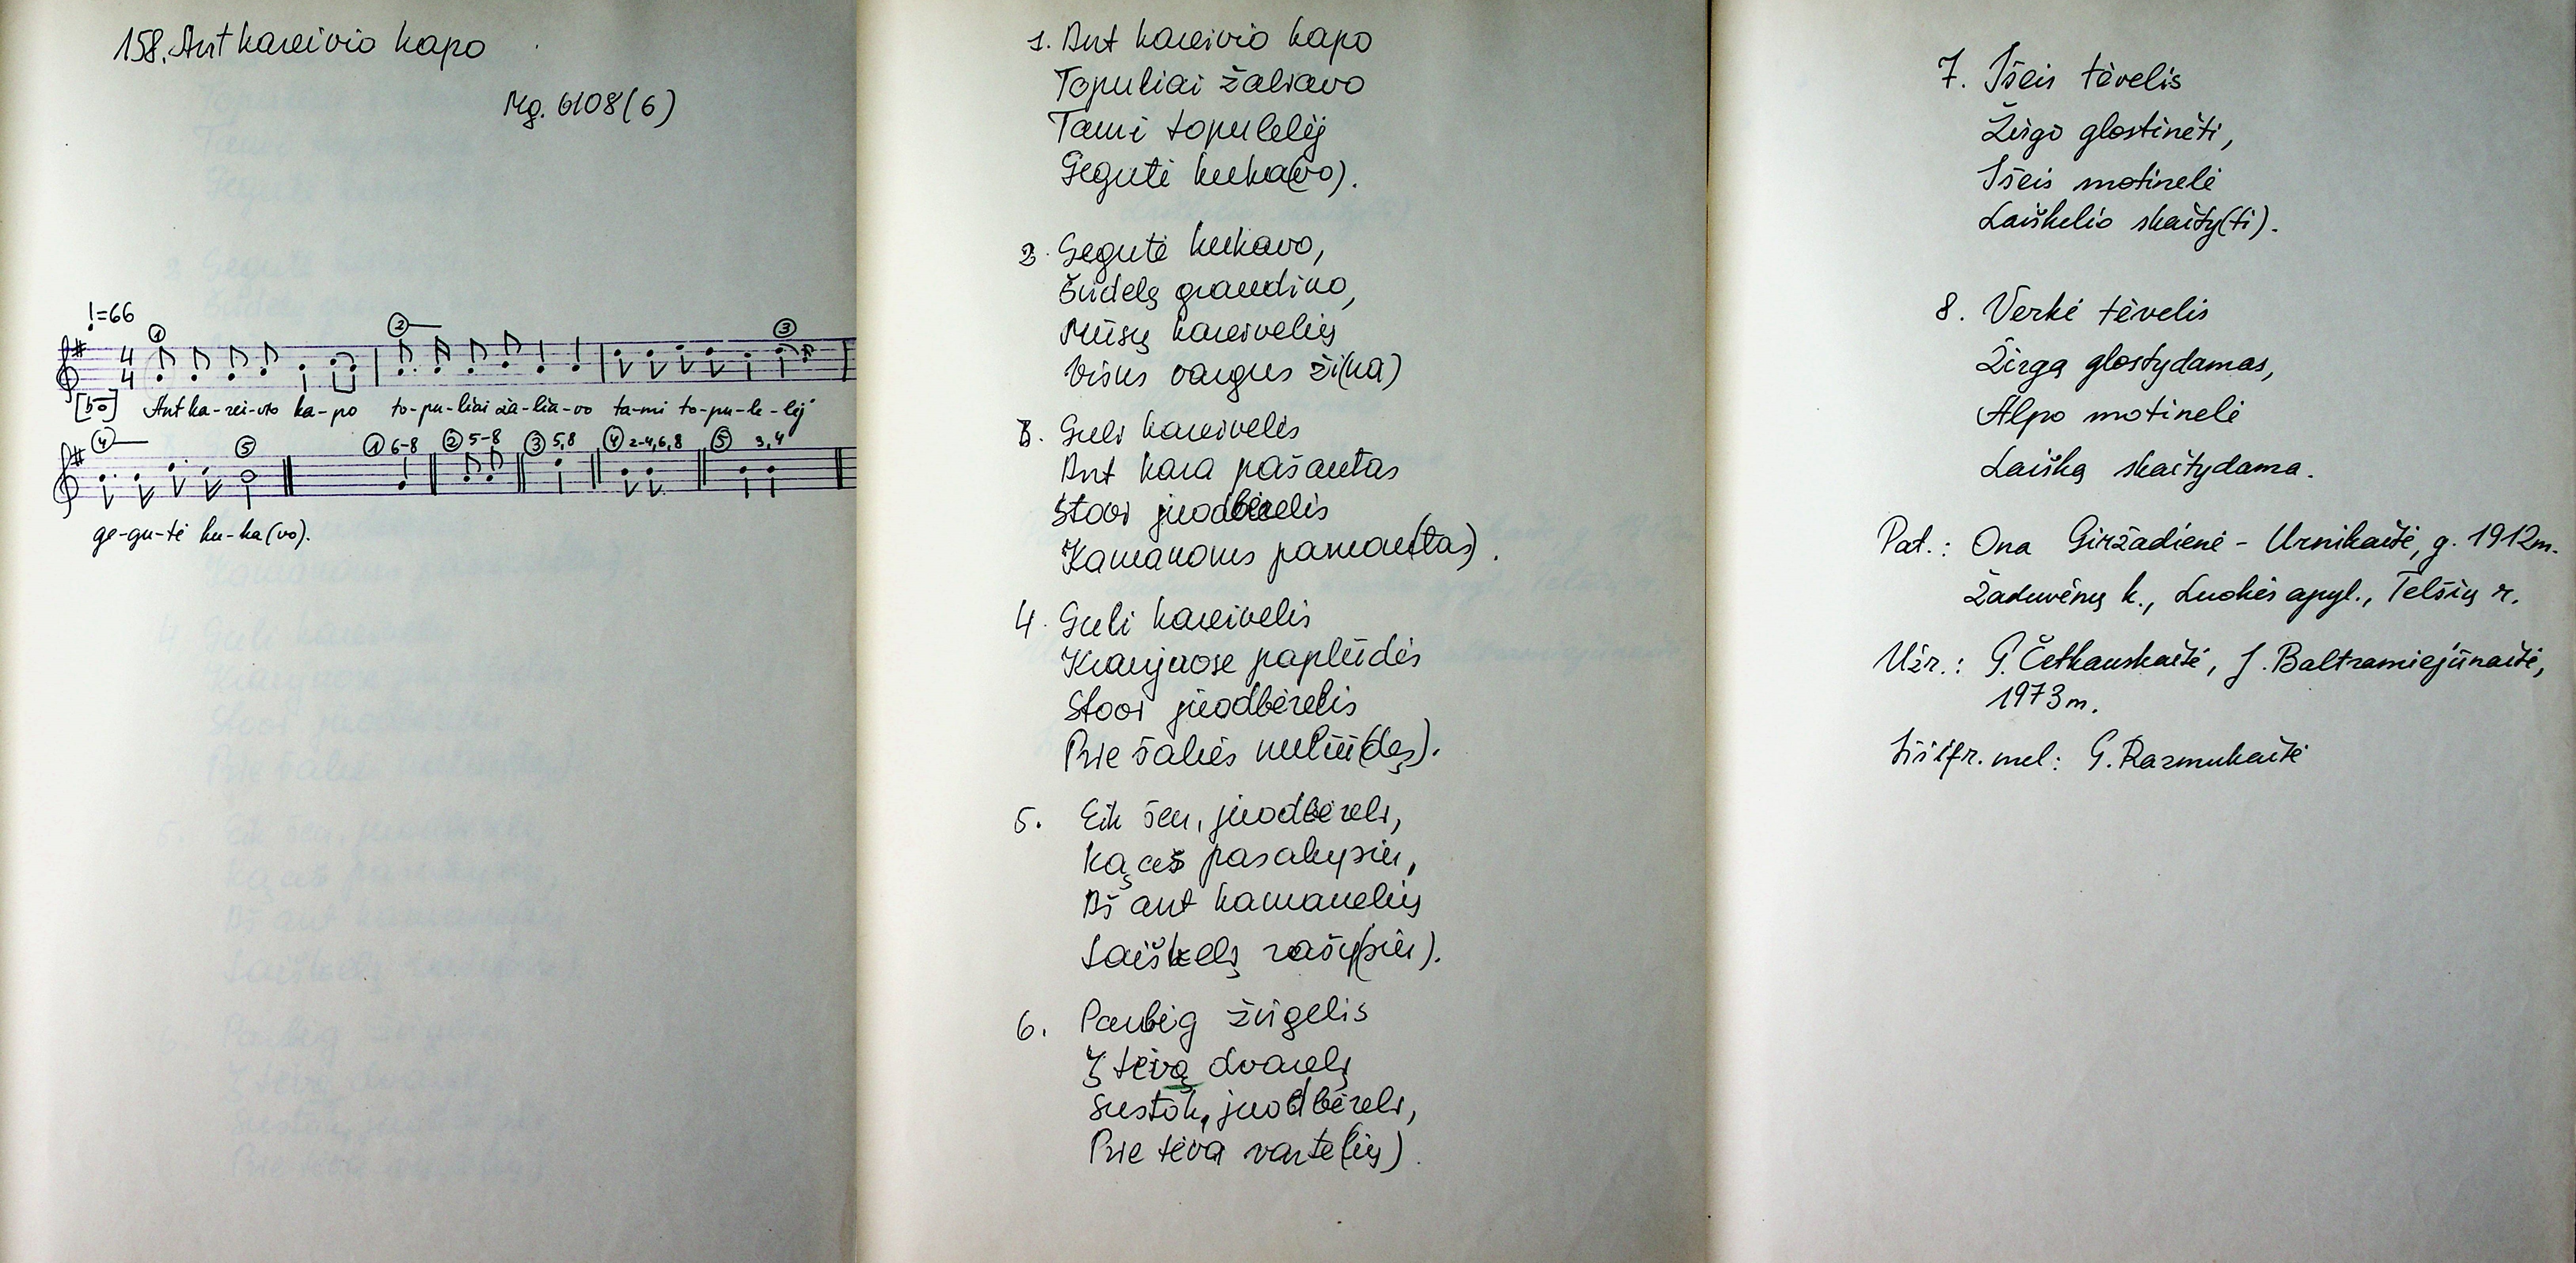 158. Ant kareivio kapo
Mg. 6108(6)
♩=66
① ② ③
4
4
[bo] Ant ka-rei-vio ka-po to-pu-liai ža-lia-vo ta-mi to-pu-le-lėj
④ ⑤ ① 6-8 ② 5-8 ③ 5,8 ④ 2-4,6,8 ⑤ 3,4
ge-gu-tė ku-ka(vo).
1. Ant kareivio kapo
Topuliai žaliavo
Tami topulelėj
Gegutė kuka(vo).
2. Gegutė kukavo,
Širdelę graudino,
Mūsų kareivelių
Visus vargus ži(na)
3. Guli kareivelis
Ant kara pašautas
Stovi juodbėrelis
Kamanoms pamau(tas).
4. Guli kareivelis
Kraujuose paplūdės
Stovi juodbėrelis
Prie šalies nuliū(dęs).
5. Eik šen, juodbėreli,
Ką aš pasakysiu,
Aš ant kamanelių
Laiškelį rašy(siu).
6. Parbėg žirgelis
Į tėvą dvarelį
Sustok, juodbėreli,
Prie tėva varte(lių).
7. Išeis tėvelis
Žirgo glostinėti,
Išeis motinelė
Laiškelio skaity(ti).
8. Verkė tėvelis
Žirgą glostydamas,
Alpo motinelė
Laišką skaitydama.
Pat.: Ona Giržadienė - Urnikaitė, g. 1912m.
Žaduvėnų k., Luokės apyl., Telšių r.
Užr.: G. Četkauskaitė, J. Baltramiejūnaitė,
1973m.
Iššifr. mel: G. Razmukaitė